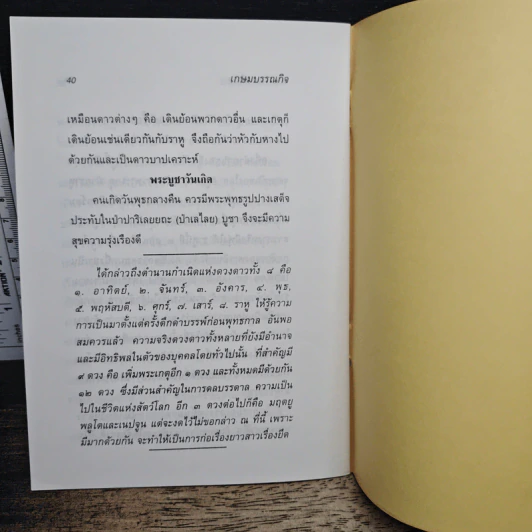 40 เกษมบรรณกิจ
เหมือนดาวต่างๆ คือ เดินย้อนพวกดาวอื่น และเกตุก็
เดินย้อนเช่นเดียวกันกับราหู จึงถือกันว่าหัวกับหางไป
ด้วยกันและเป็นดาวบาปเคราะห์
พระบูชาวันเกิด
คนเกิดวันพุธกลางคืน ควรมีพระพุทธรูปปางเสด็จ
ประทับในป่าปาริเลยยกะ (ป่าเลไลย) บูชา จึงจะมีความ
สุขความรุ่งเรืองดี
ได้กล่าวถึงตำนานกำเนิดแห่งดวงดาวทั้ง ๘ คือ
๑. อาทิตย์, ๒. จันทร์, ๓. อังคาร, ๔. พุธ,
๕. พฤหัสบดี, ๖. ศุกร์, ๗. เสาร์, ๘. ราหู ให้รู้ความ
การเป็นมาตั้งแต่ครั้งดึกดำบรรพ์ก่อนพุทธกาล อันพอ
สมควรแล้ว ความจริงดวงดาวทั้งหลายที่ยังมีอำนาจ
และมีอิทธิพลในตัวของบุคคลโดยทั่วไปนั้น ที่สำคัญมี
๙ ดวง คือ เพิ่มพระเกตุอีก ๑ ดวง และทั้งหมดมีด้วยกัน
๑๒ ดวง ซึ่งมีส่วนสำคัญในการดลบรรดาล ความเป็น
ไปในชีวิตแห่งสัตว์โลก อีก ๓ ดวงต่อไปก็คือ มฤตยู
พลูโตและเนปจูน แต่จะงดไว้ไม่ขอกล่าว ณ ที่นี้ เพราะ
มีมากด้วยกัน จะทำให้เป็นการก่อเรื่องยาวสาวเรื่องยืด